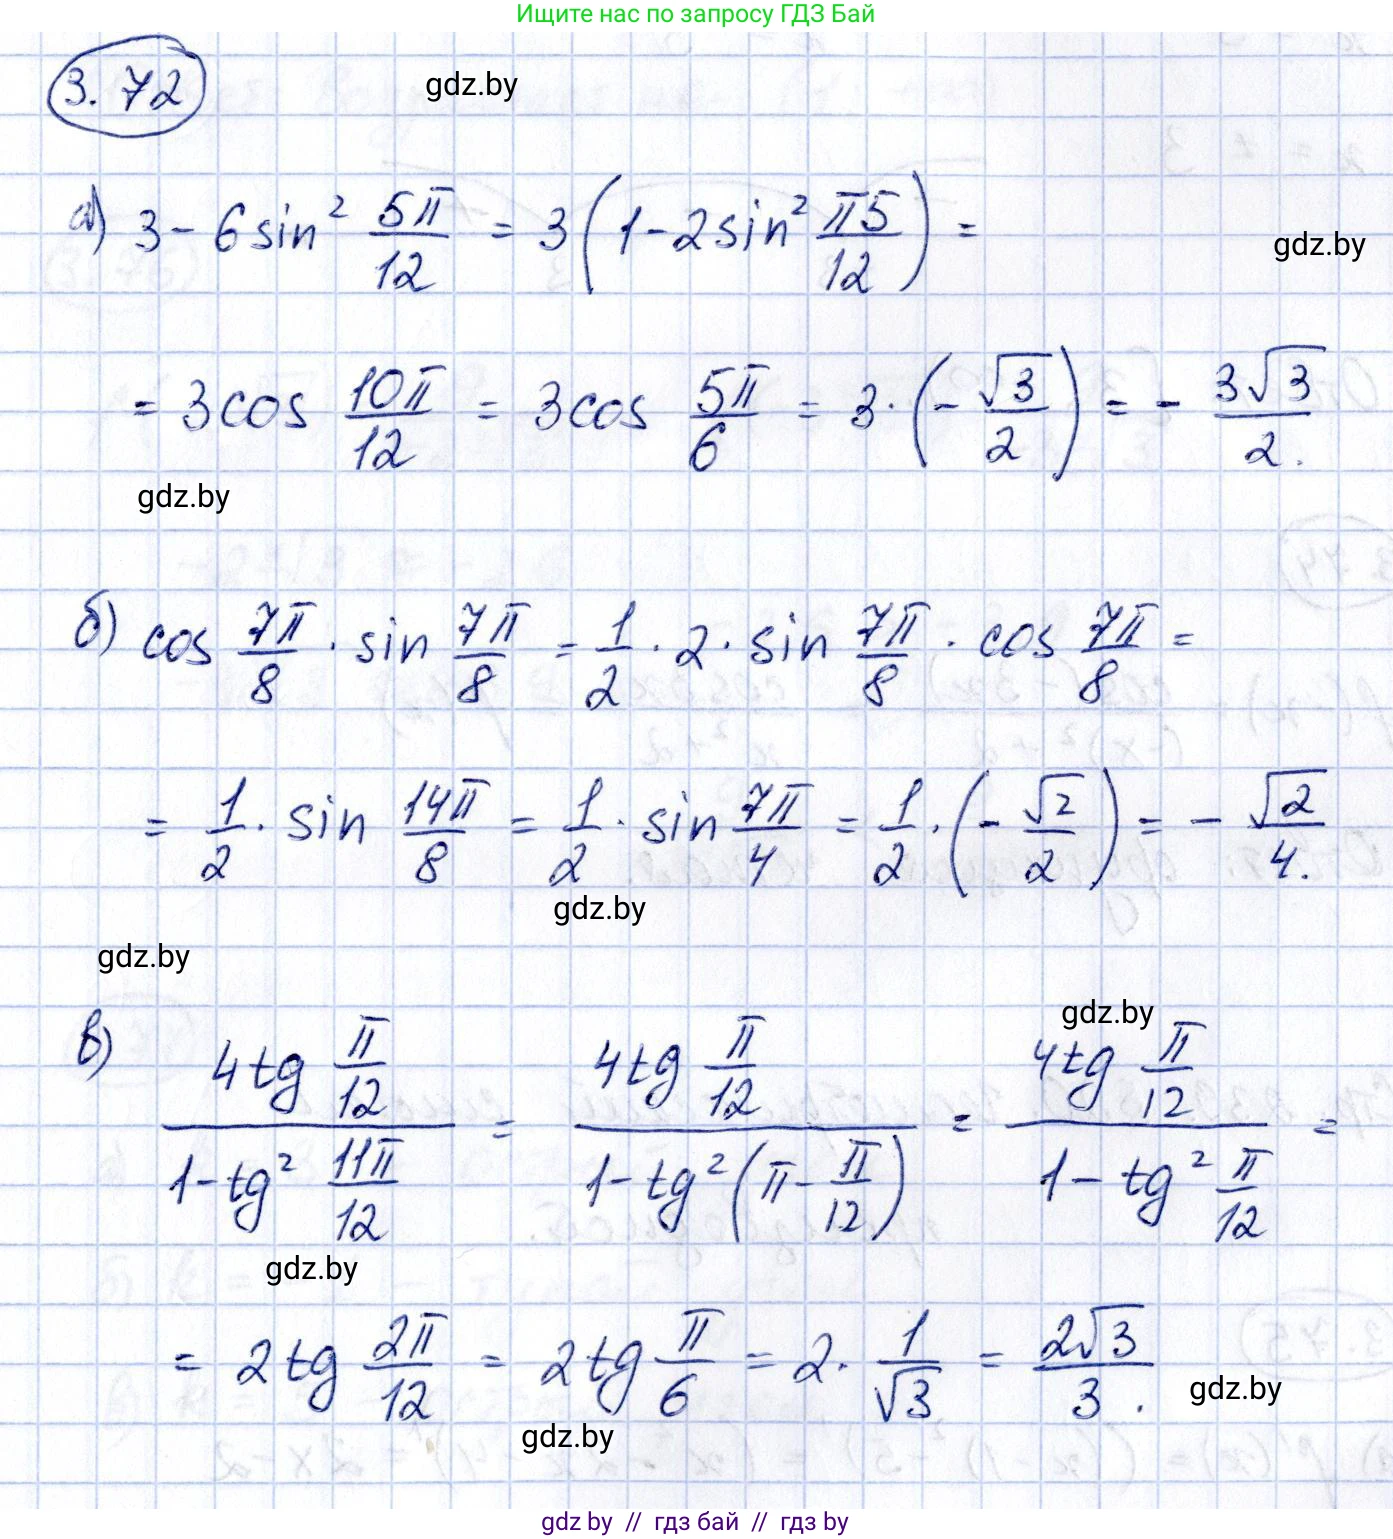 Ищите нас по запросу ГДЗ Бай
3.72
gdz.by
а) 3 - 6 sin² 5π/12 = 3(1 - 2sin² π5/12) =
gdz.by
= 3cos 10π/12 = 3cos 5π/6 = 3·(-√3/2) = - 3√3/2.
gdz.by
б) cos 7π/8 · sin 7π/8 = 1/2 · 2 · sin 7π/8 · cos 7π/8 =
= 1/2 · sin 14π/8 = 1/2 · sin 7π/4 = 1/2 · (-√2/2) = - √2/4.
gdz.by
gdz.by
gdz.by
в) (4tg π/12)/(1-tg² 11π/12) = (4tg π/12)/(1-tg²(π-π/12)) = (4tg π/12)/(1-tg² π/12) =
gdz.by
= 2tg 2π/12 = 2tg π/6 = 2 · 1/√3 = 2√3/3.
gdz.by
gdz.by
gdz by // гдз бай // gdz by